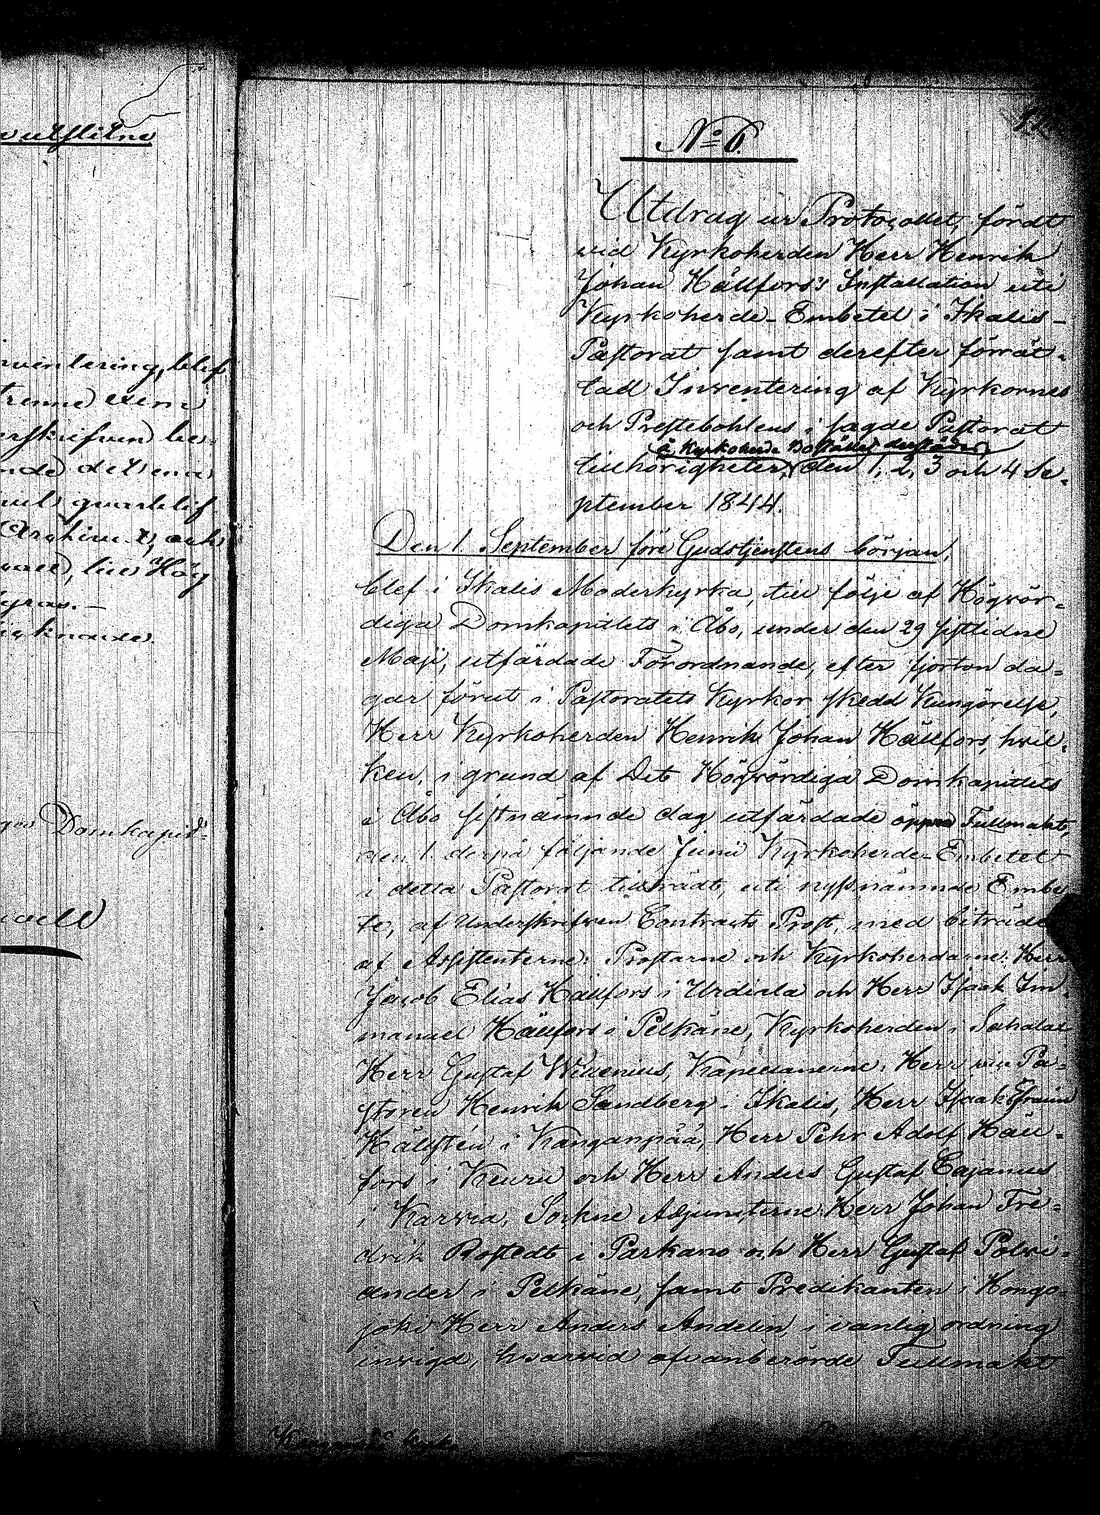 utslitne
inventering, blef
denne
underskrifven be-
qvarblif
Archivet, och
till Hög
Domkapit-
N:o 6.
Utdrag ur Protocollet, fördt
vid Kyrkoherden Herr Henrik
Johan Hällfors's Installation uti
Kyrkoherde-Embetet i Ikalis-
Pastorat samt derefter förrät-
tad Inventering af Kyrkornes
och Prestebohlens i sagde Pastorat
å Kyrkoherde Bostället derstädes
tillhörigheter, den 1, 2, 3 och 4 Se-
ptember 1844.
Den 1. September före Gudstjenstens början,
blef i Ikalis Moderkyrka, till följe af Högvör-
diga Domkapitlets i Åbo, under den 29 sistlidne
Maji, utfärdade Förordnande, efter fjorton da-
gar förut i Pastoratets Kyrkor skedd Kungörelse,
Herr Kyrkoherden Henrik Johan Hällfors, hvil-
ken, i grund af Dets Högvördiga Domkapitlets
i Åbo sistnämnde dag utfärdade öppna Fullmakt,
den 1. derpå följande Junii Kyrkoherde-Embetet
i detta Pastorat tillträdt, uti nyssnämnde Embe-
te, af Underskrifven Contracts Prost, med biträde
af Assistenterne: Prostarne och Kyrkoherdarne: Herr
Jacob Elias Hällfors i Urdiala och Herr Isaak Im-
manuel Hällfors i Pelkäne, Kyrkoherden i Sahalax
Herr Gustaf Willenius, Kapellanerne: Herr vice Pa-
storen Henrik Sandberg i Ikalis, Herr Isaak Efraim
Hällstén i Kangaspää, Herr Pehr Adolf Häll-
fors i Keuru och Herr Anders Gustaf Cajanus
i Karvia, Sockne Adjuncterne: Herr Johan Fre-
drik Rostedt i Parkano och Herr Gustaf Polvi-
ander i Pelkäne, samt Predikanten i Hongo-
joki Herr Anders Andelin, i vanlig ordning
invigd, hvarvid ofvanberörde Fullmakt